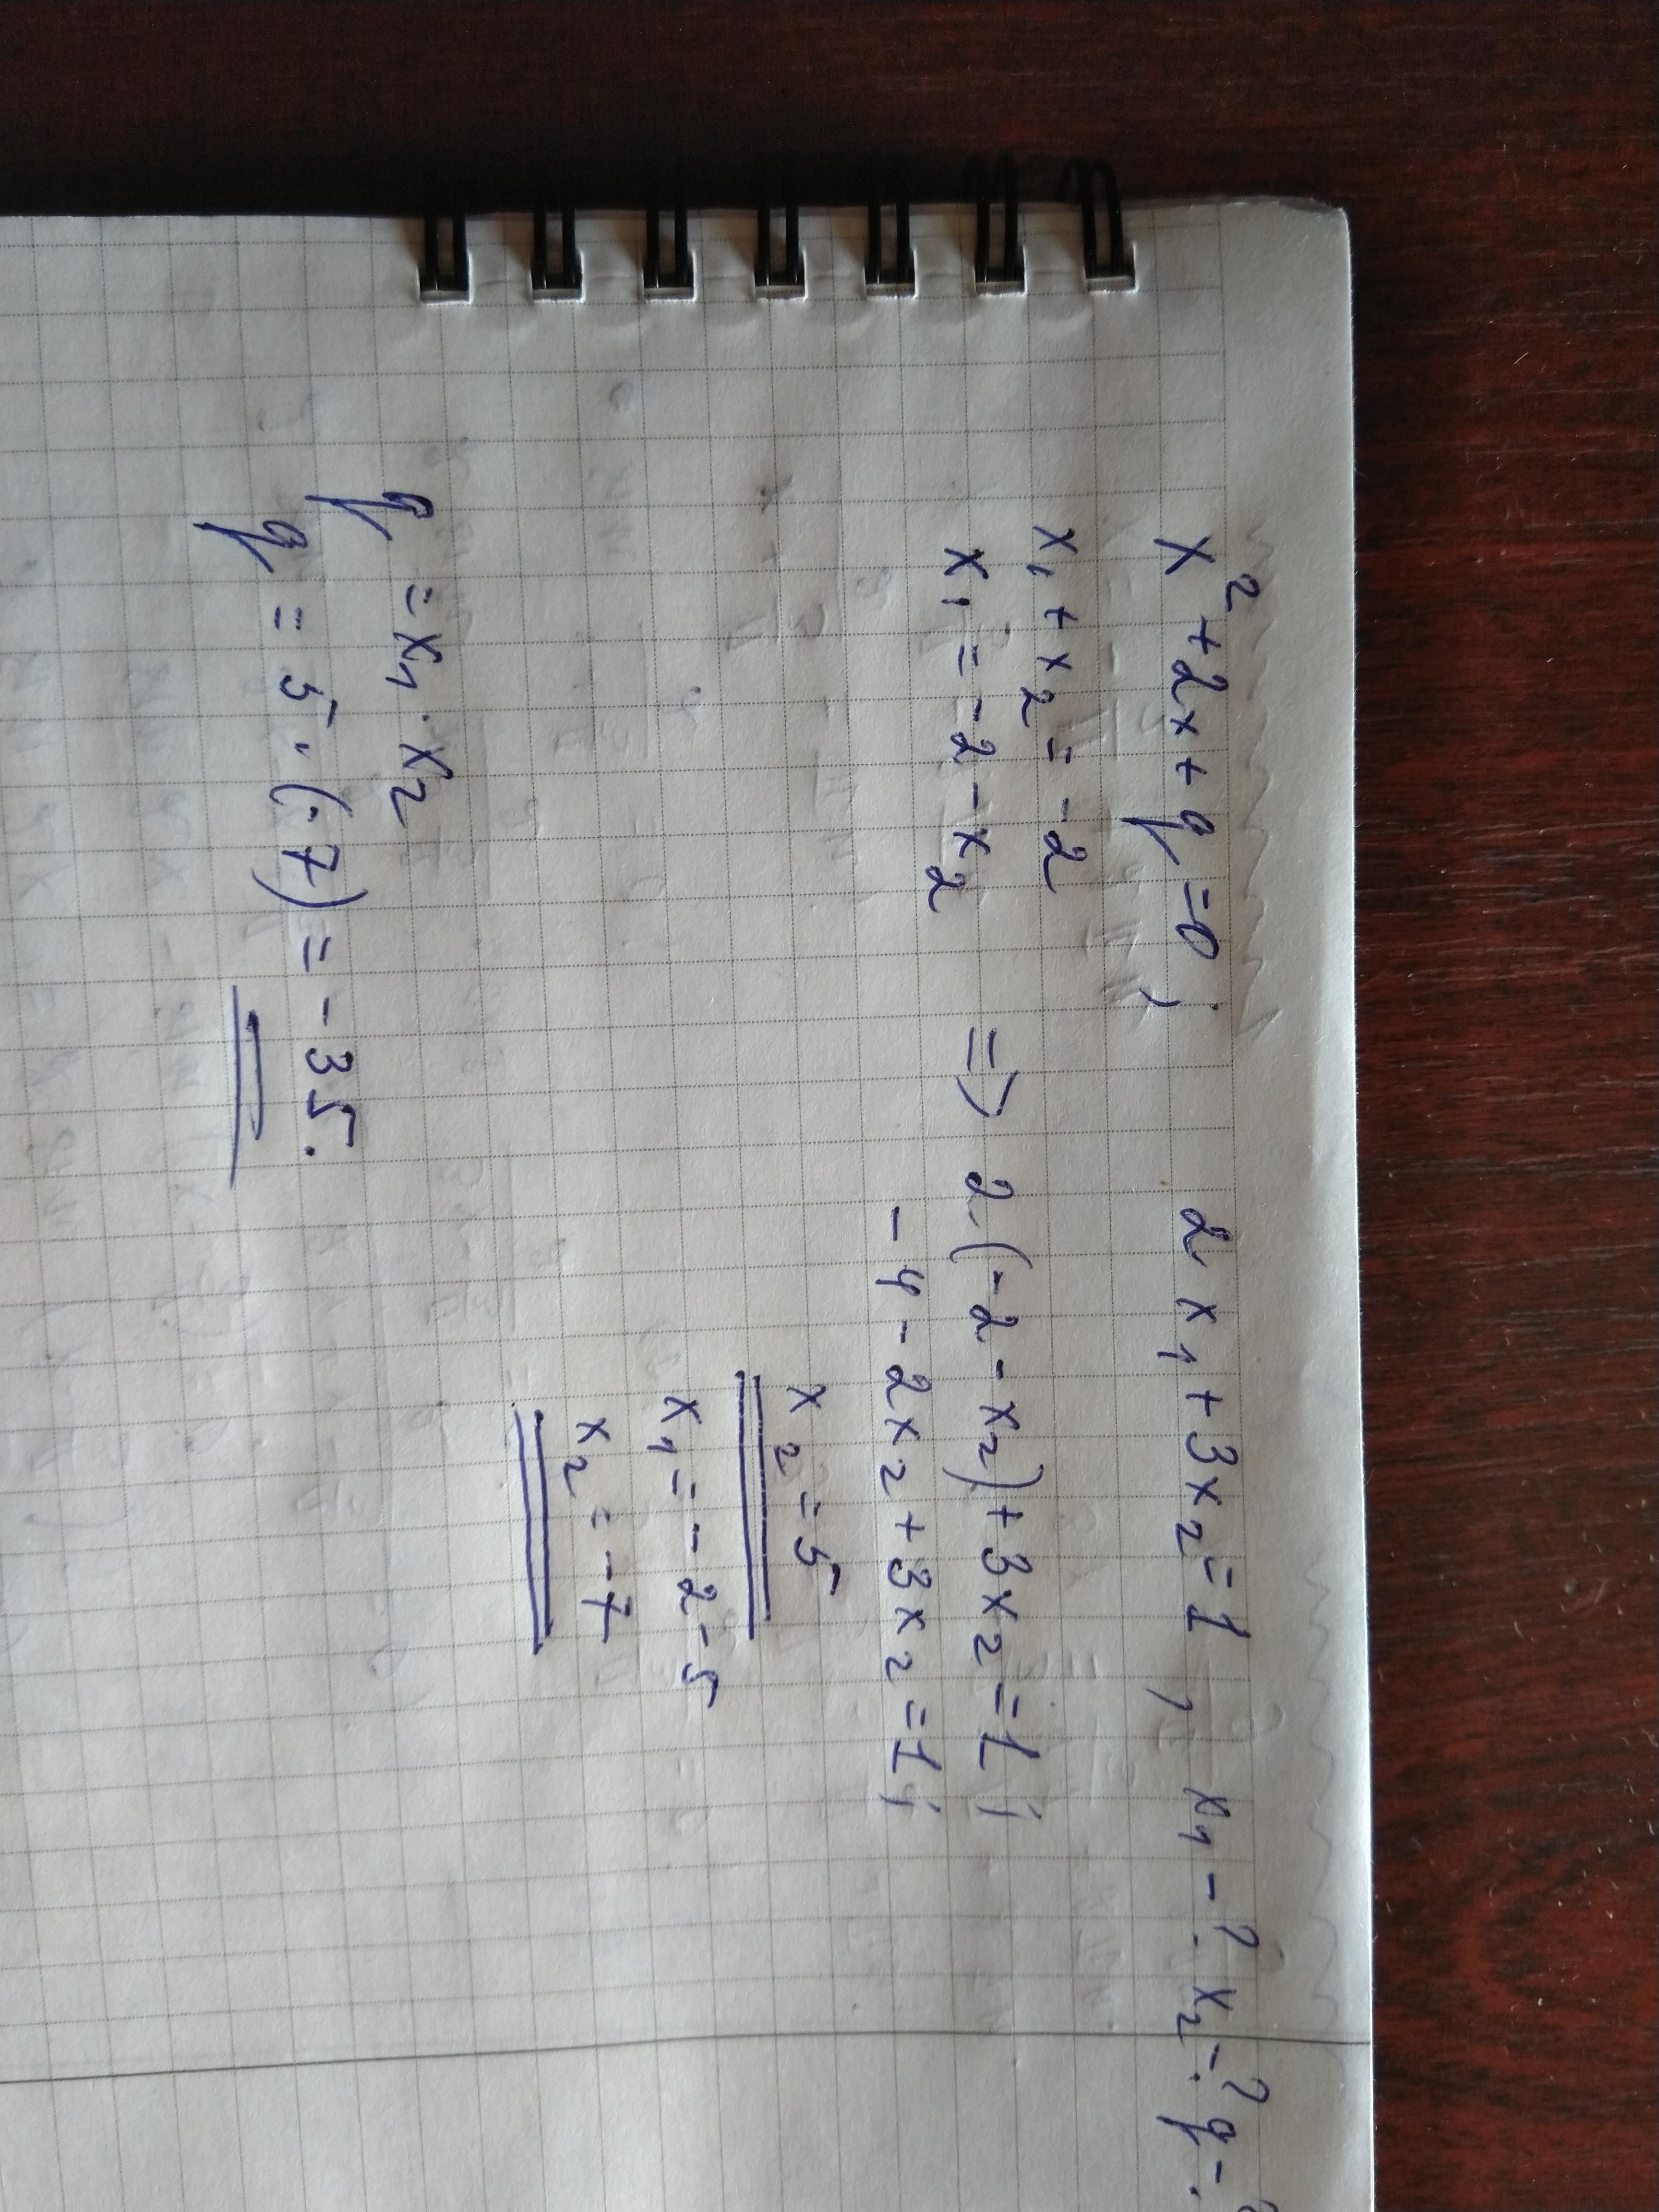 x² + 2x + q = 0 ; 2x₁ + 3x₂ = 1 , x₁ - ? x₂ - ? q - ?
x₁ + x₂ = -2
x₁ = -2 - x₂ => 2·(-2 - x₂) + 3x₂ = 1 ;
-4 - 2x₂ + 3x₂ = 1 ;
x₂ = 5
x₁ = -2 - 5
x₂ = -7
q = x₁ · x₂
q = 5 · (-7) = -35.